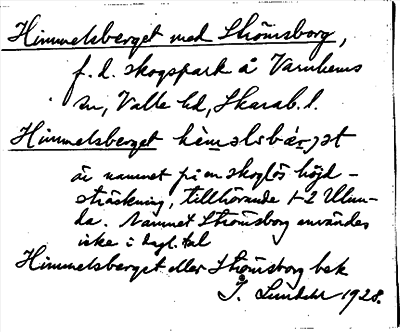 Himmelsberget med Strömsborg,
f.d. skogspark å Varnhems
sn, Valle hd, Skarab.l.
Himmelsberget
är namnet på en skoglös höjd-
sträckning, tillhörande 1-2 Ulun-
da. Namnet Strömsborg användes
icke i dagl. tal
Himmelsberget eller Strömsborg bek
J. Lundahl 1928.